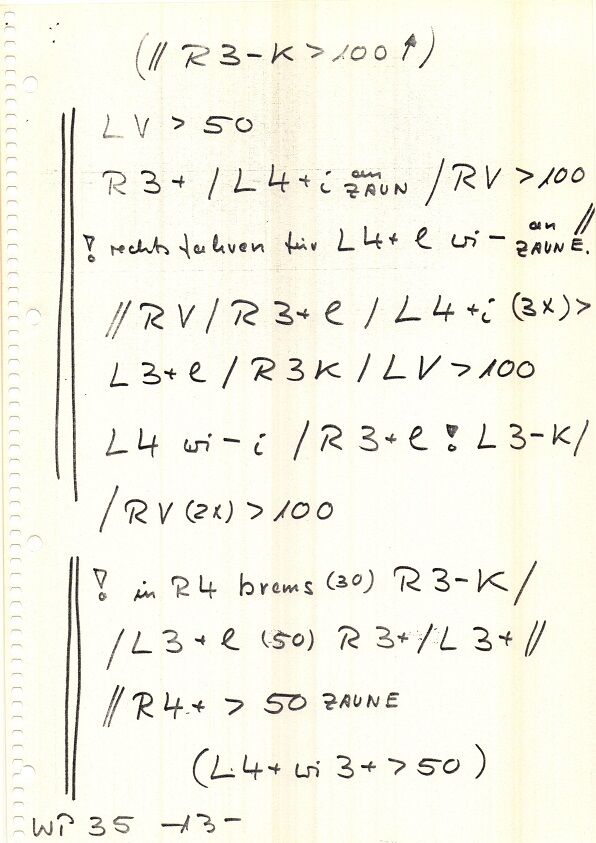 (// R3-K > 100 ↑)
LV > 50
R3+ / L4+i an ZAUN / RV > 100
! rechts fahren für L4+ l wi - an ZAUNE. //
// RV / R3+ l / L4+i (3x) >
L3+ l / R3K / LV > 100
L4 wi - i / R3+ l ! L3-K /
/ RV (2x) > 100
! in R4 brems (30) R3-K /
/ L3+ l (50) R3+ / L3+ //
// R4+ > 50 ZAUNE
(L4+ wi 3+ > 50)
WP 35 -13-